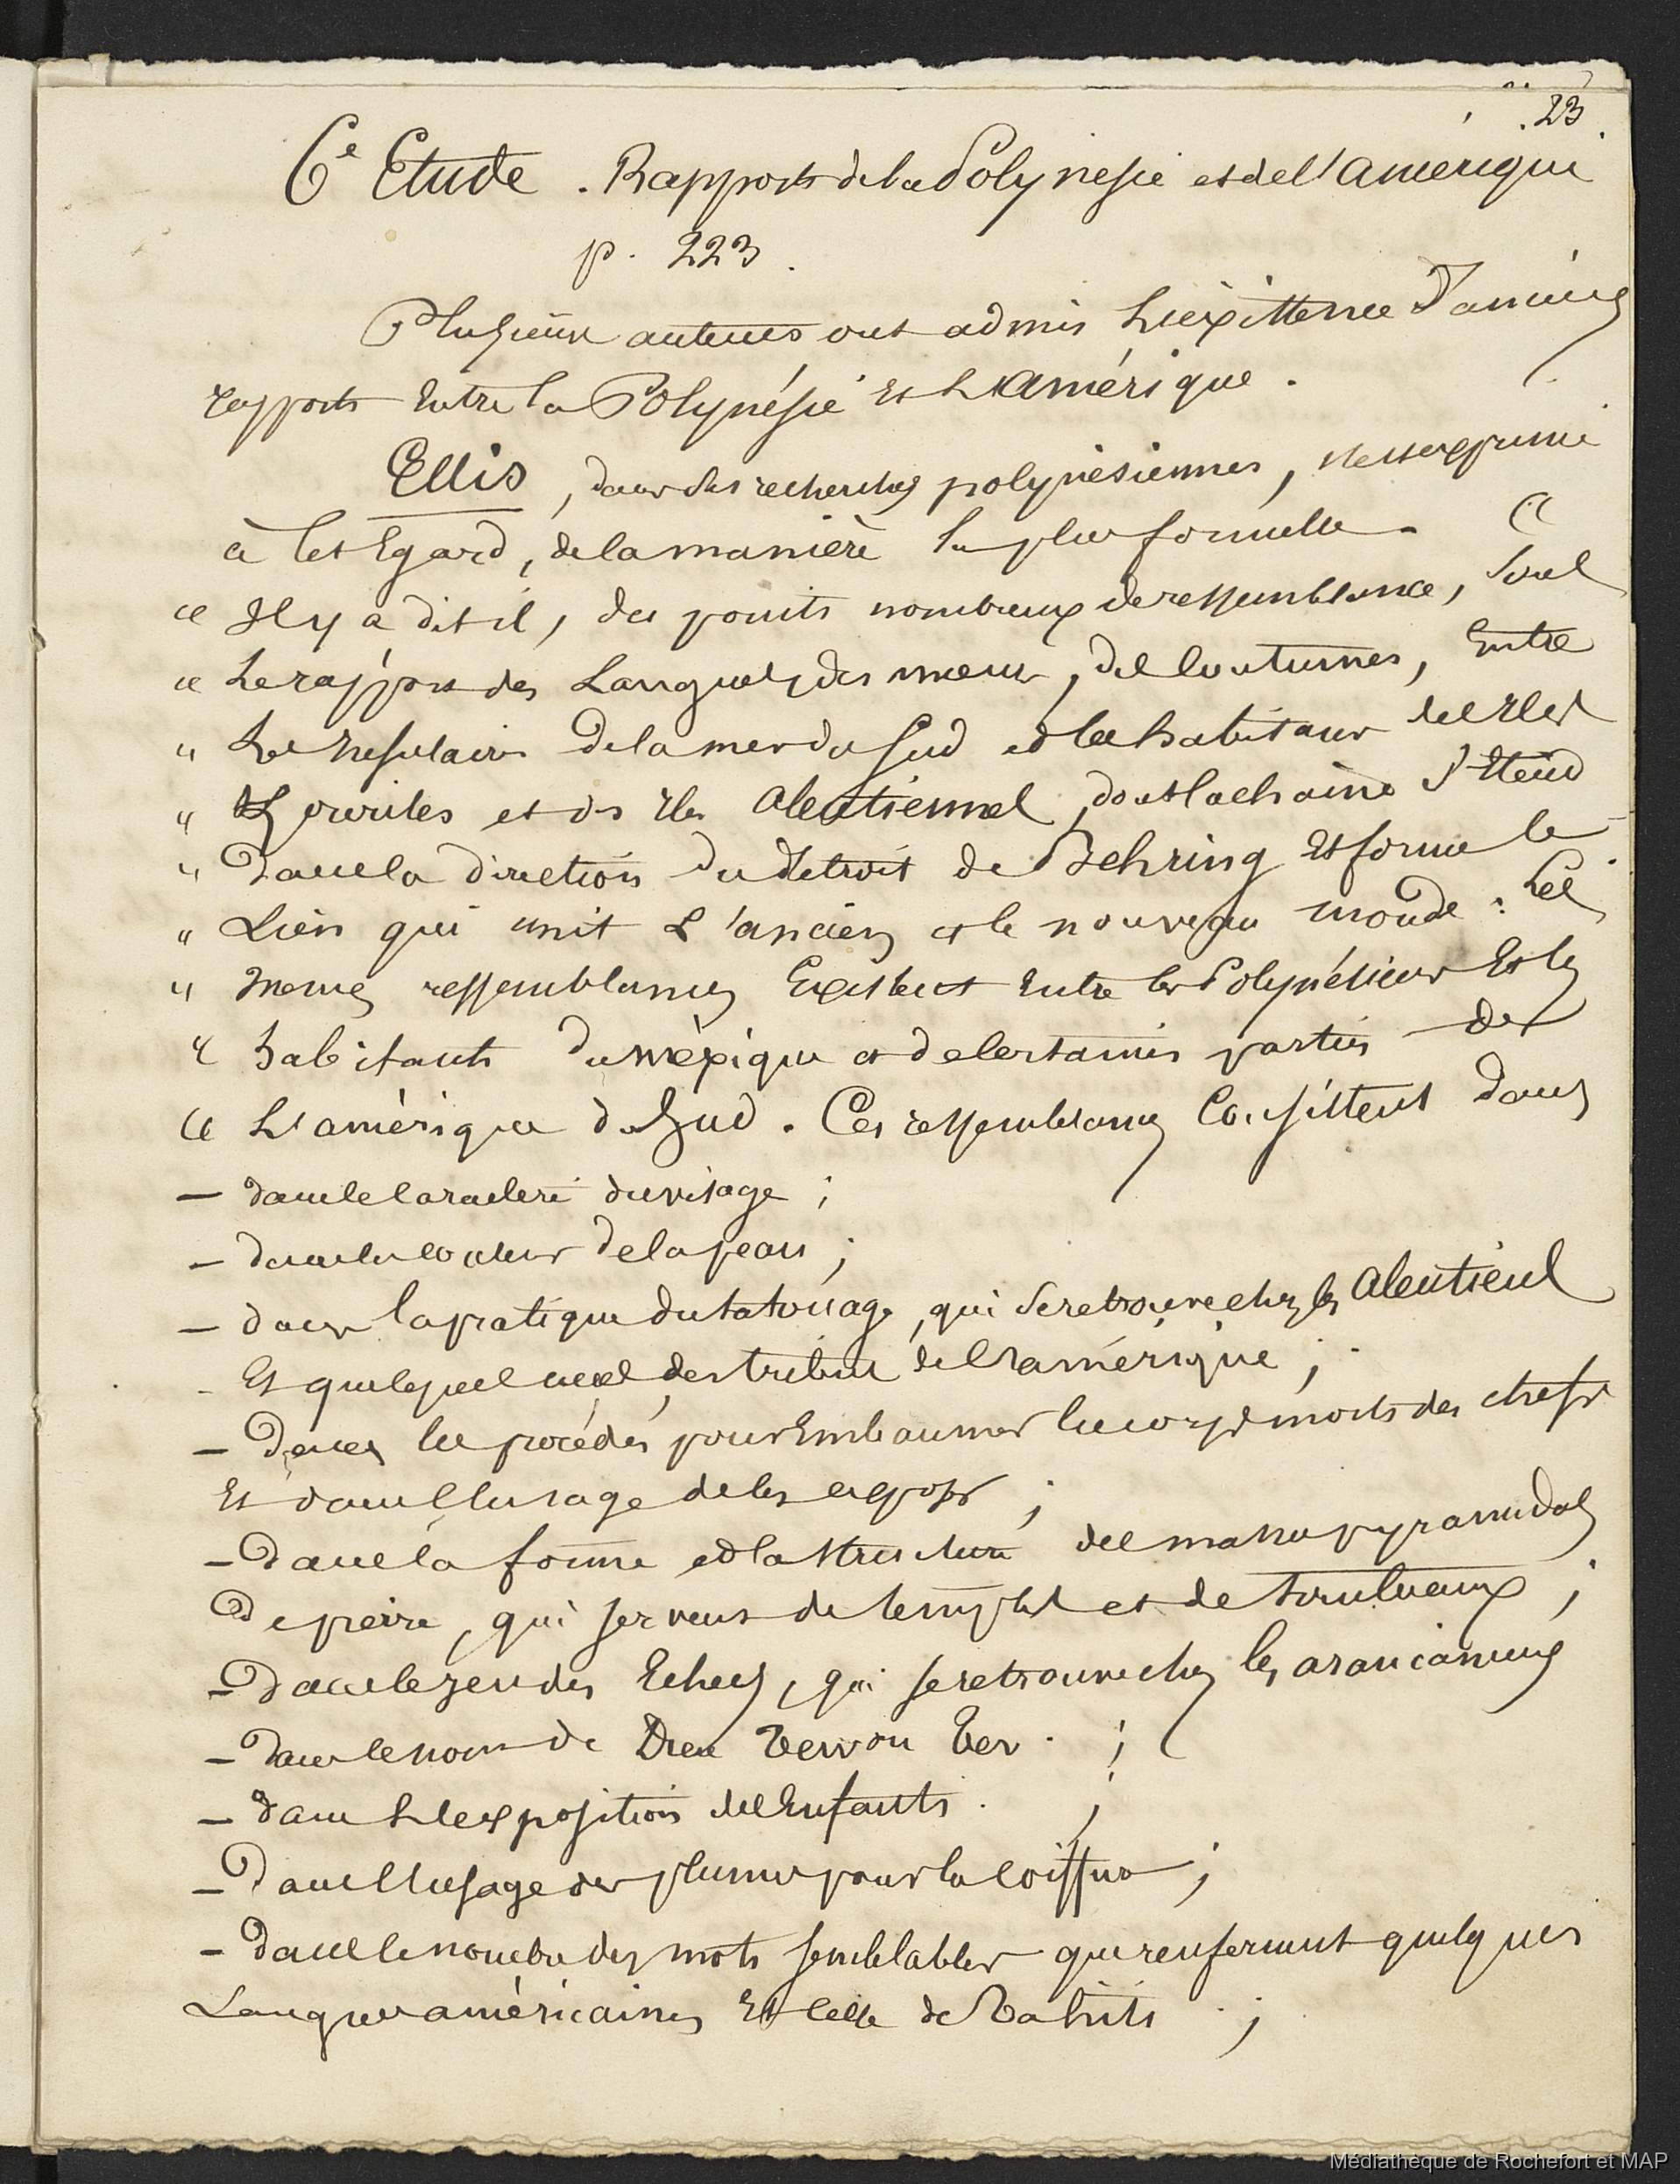 23.
6e Etude. Rapports de la Polynesie et de l'Amerique
p. 223.
Plusieurs auteurs ont admis L'existence d'anciens
rapports Entre la Polynésie Et L'Amérique.
Ellis, dans ses recherches polynésiennes, s'est exprimé
à cet Egard, de la manière la plus formelle.
" Il y a dit-il, des points nombreux de ressemblance, sous
" Le rapport des Langues, des mœurs, des coutumes, Entre
" Les Insulaires de la mer du Sud et les habitans des Iles
" Kouriles et des Iles Aleutiennes, dont la chaine s'Etend
" Dans la direction du Detroit de Behring Et forme le
" Lien qui unit L'ancien et le nouveau monde : Les
" memes ressemblances Existent Entre les Polynésiens Et les
" habitants du Mèxique et de certaines parties de
" L'amérique du Sud. Ces ressemblances Consistent dans
— dans le caractere du visage ;
— dans la couleur de la peau ;
— dans la pratique du tatouage, qui se retrouve chez les Aleutiens
Et quelques unes des tribus de l'amérique ;
— Dans les procédés pour Embaumer les corps morts des chefs
Et dans l'usage de les exposer ;
— Dans la forme et la structure des masses pyramidales
De pierre, qui servent de temples et de tombeaux ;
— Dans le jeu des Echecs, qui se retrouve chez les araucaniens
— Dans le nom de Dieu Tew ou Tev. ;
— dans L'exposition des Enfants. ;
— Dans l'usage des plumes pour la coiffure ;
— Dans le nombre des mots semblables que renferment quelques
Langues américaines Et celle de Tahiti. ;
Médiathèque de Rochefort et MAP